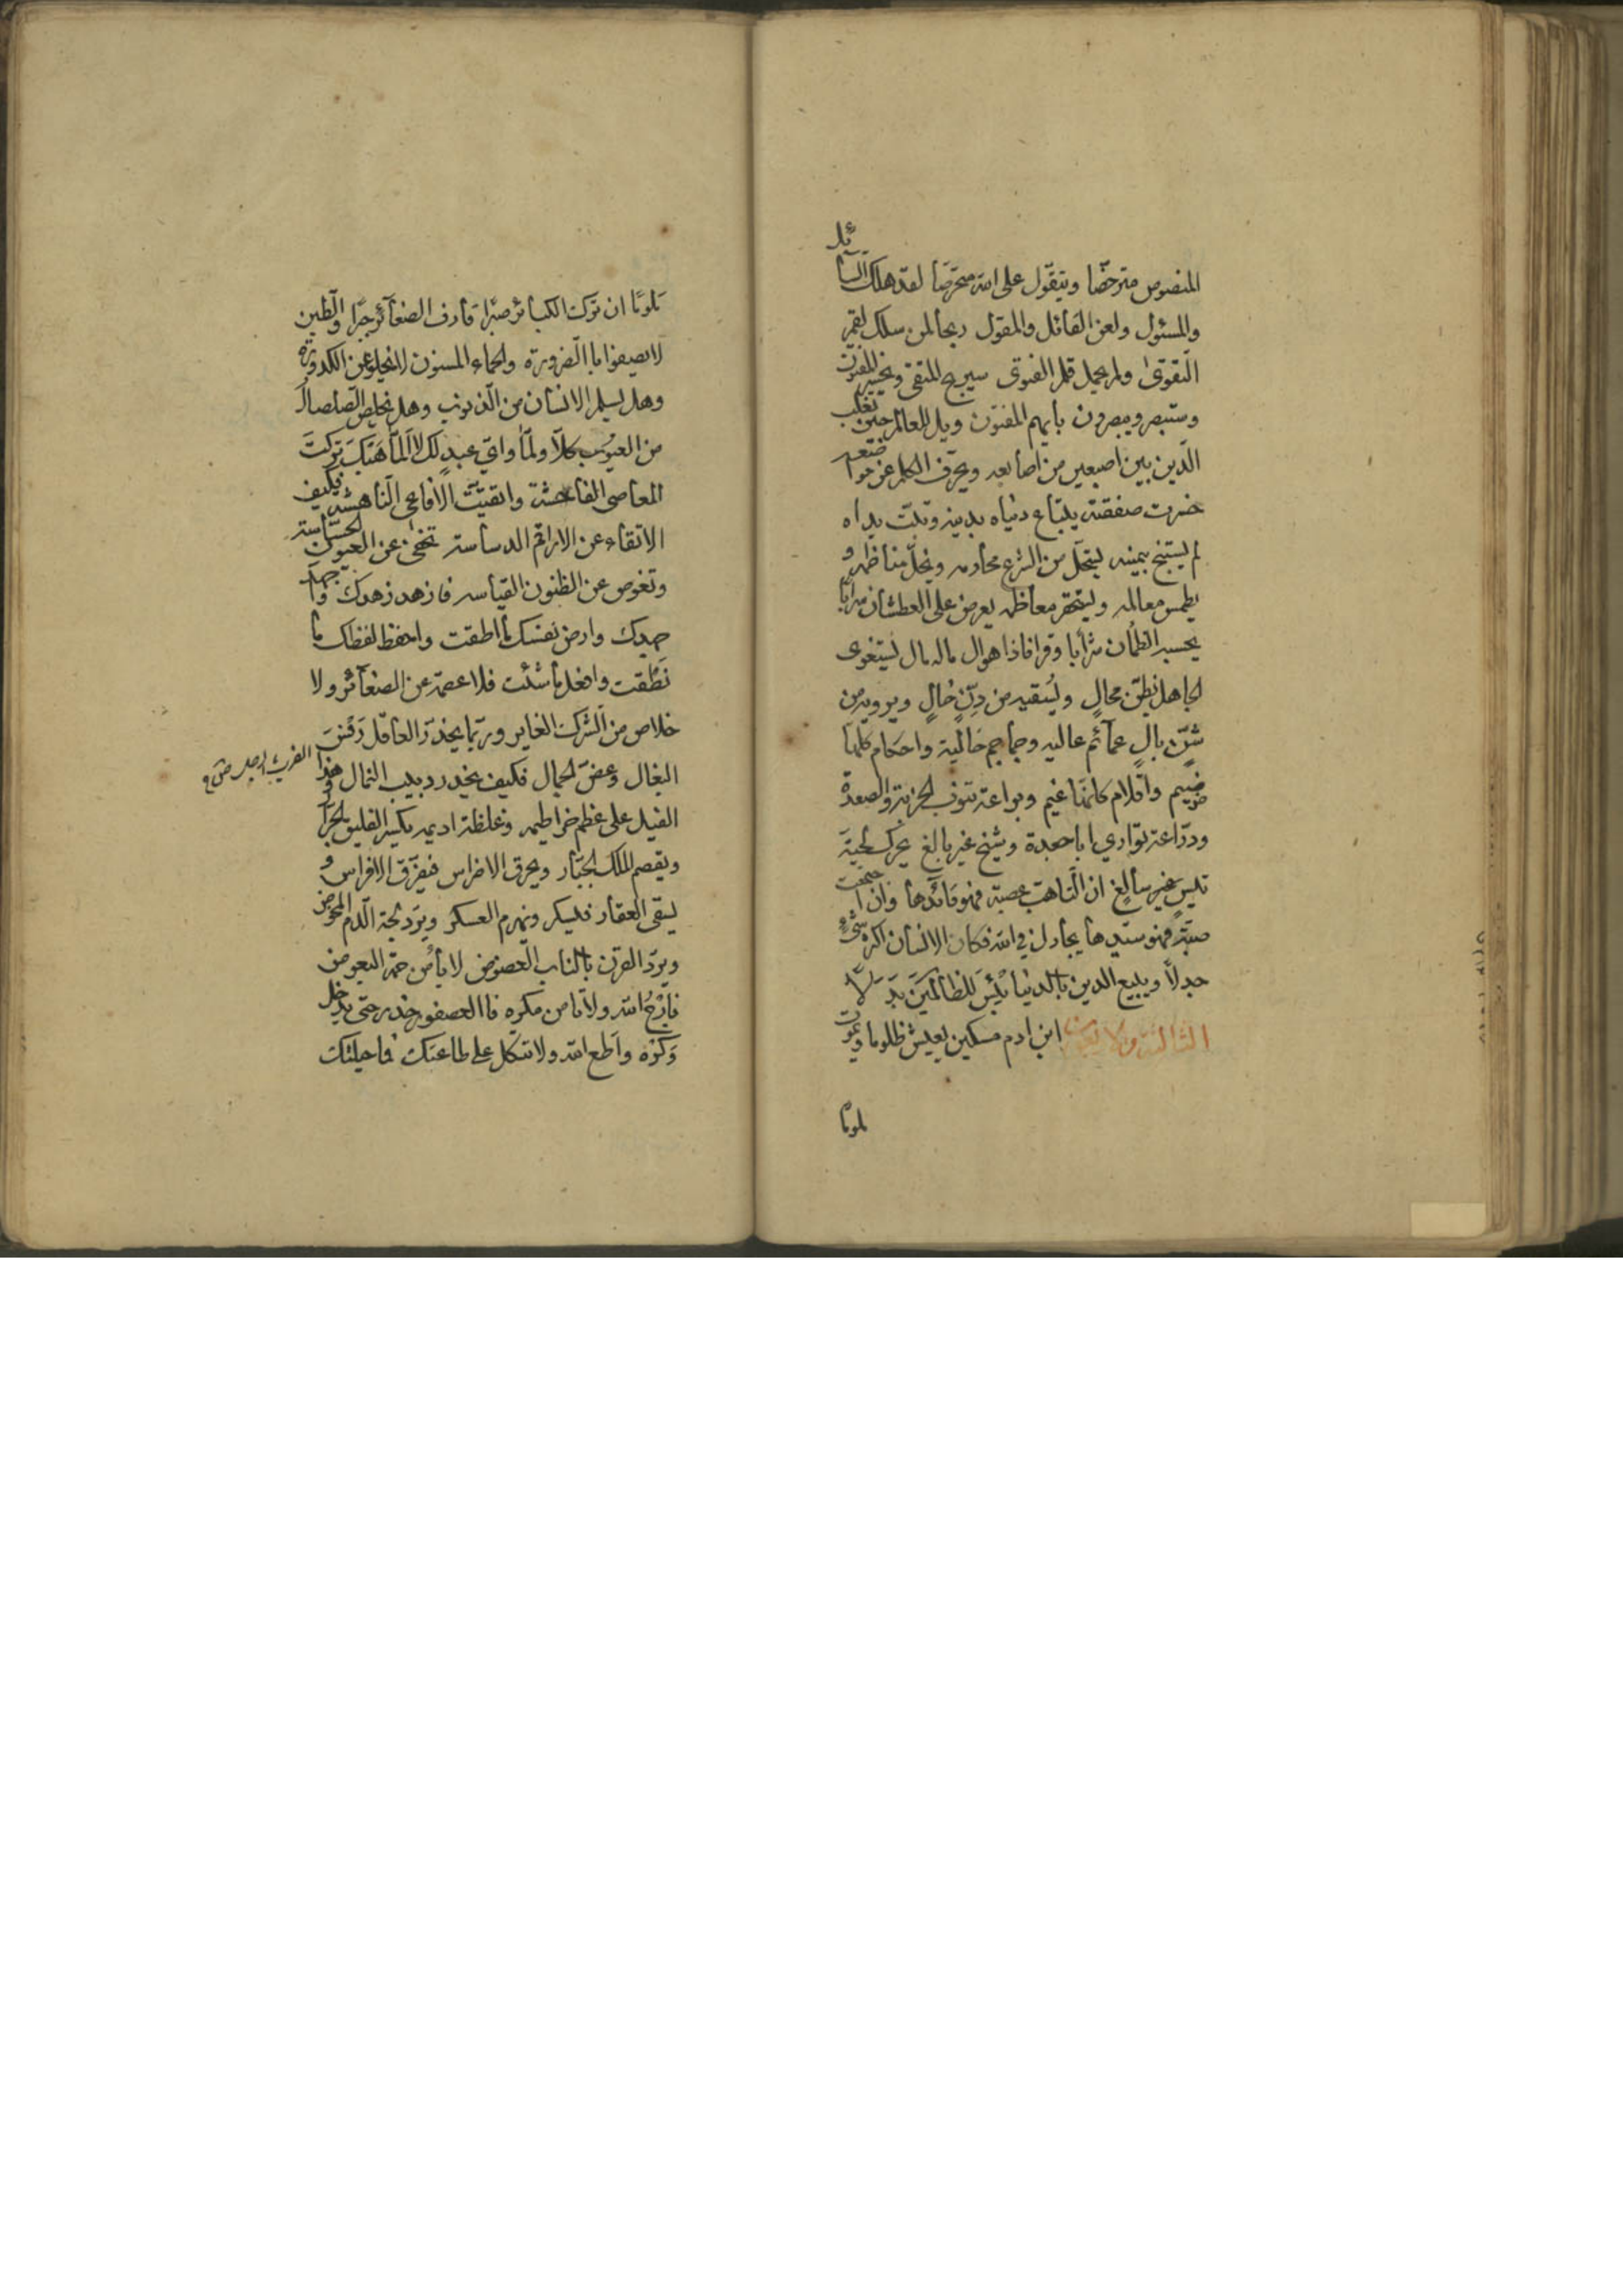 المنصوص مترخّصا ويتقّول على الله متخرّصا لقد هلك السآئل
والمسئول ولعن القائل والمقول ربحا لمن سلك لقم
التقوى ولم يحمل قلم الفتوى سيربح المتقي ويخسر المفتون
وستبصر ويبصرون بأيهم المفتون ويل للعالم حين تقلب
الدين بين اصبعين من اصابعه ويحرّف الكلم عن مواضعه
خسرت صفقته يبتاع دنياه بدينه وتبّت يداه
لم يستنج بيمينه ليتحل من الشرع محارمه ويخلّ مناظمه و
يطمس معالمه وليستحقر معاظمه يعرض على العطشان سرابا
يحسبه الظمأن شرابا وقرافا ذاهوال ماله مال يستغوى
الجاهل بنطق محال ويسقيه من دنّ خال ويرويه من
شنّ بال عمائم عاليه وجماجم خالية واحكام كلها
ضيم واقلام كانها غيم وبراعة تنوف الجزيرة والصعدة
ودرّاعة تواري اباجعدة وشيخ غير بالغ يحرك لحيته
تيس غير سالغ ان التاهت عصبة فهو قائدها وان اجتمعت
صبّة فهو سيّدها يجادل في الله وكان الانسان اكثر شيء
جدلا ويبيع الدين بالدنيا بئس للظالمين بدلا
الثالثة والاربعون ابن ادم مسكين يعيش ظلوما ويموت
ملوما
ملومًا ان تركت الكبائر صبرا قارف الصغآئر جبرا والطين
لا يصفوا بالضرورة والحماء المسنون لا ينجلو عن الكدورة
وهل يسلم الانسان من الذنوب وهل يخلص الصلصال
من العيوب كلاّ ولمّا وايّ عبد لك لا المّا هبك تركت
المعاصي الفاحشة واتقيت الافاعي الناهشة فكيف
الاتقاء عن الاراقم الدساسة تخفى عن العيون الحساسة
وتغوص عن الظنون القياسه فازهد زهدك واجهد
جهدك وارض نفسك ما اطقت واحفظ لفظك ما
نطقت وافعل ما شئت فلا عصمة عن الصغآئر ولا
خلاص من الشرك الغاير وربّما يحذر العاقل رفس
البغال وعضّ الجمال فكيف يحذر دبيب النمال وهذا
الفيل على عظم خراطيمه وغلظة اديمه يكسر الفليق الجرّار
ويقصم الملك الجبّار ويحرق الاضراس فيفرّق الافراس و
يسقى العقار فيسكر ويهزم العسكر ويرد لجة الدم المخوض
ويردّ القرن بالناب العضوض لا يأمن حمة البعوض
فارج الله ولا تامن مكره فاالعصفور حذر حتى يدخل
وكره واطع الله ولا تتكل على طاعتك فما حيلتك